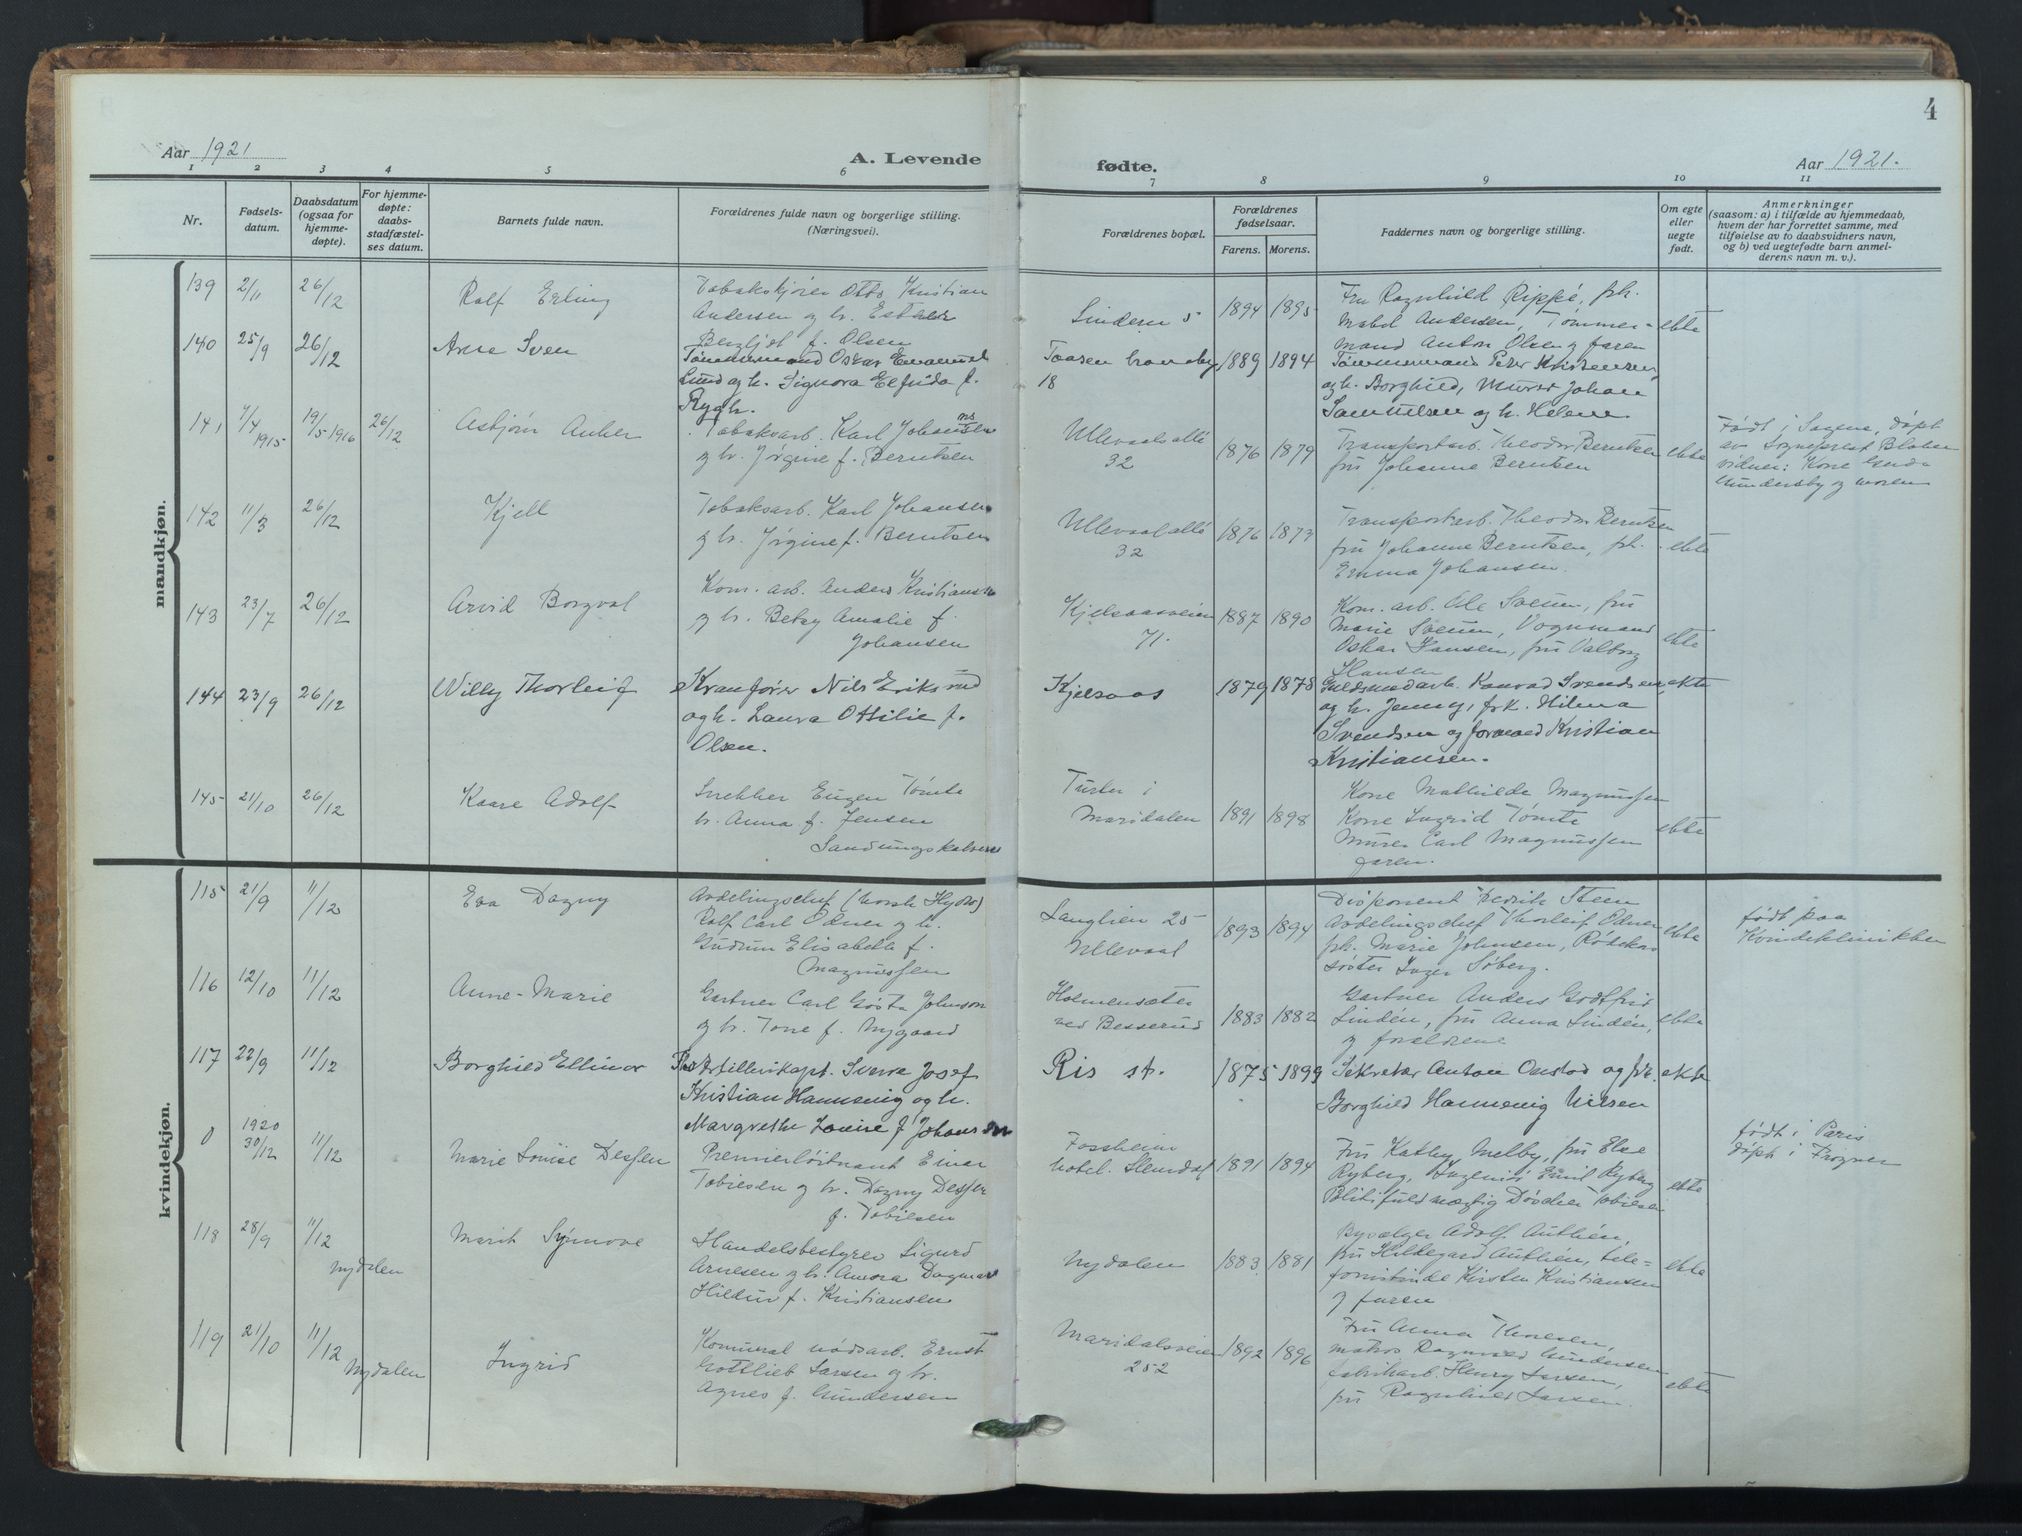 4
Aar 1921
A. Levende
fødte.
Aar 1921.
1 2 3 4 5 6 7 8 9 10 11
Nr.
Fødsels-
datum.
Daabsdatum
(ogsaa for
hjemme-
døpte).
For hjemme-
døpte:
daabs-
stadfæstel-
ses datum.
Barnets fulde navn.
Forældrenes fulde navn og borgerlige stilling.
(Næringsvei).
Forældrenes bopæl.
Forældrenes
fødselsaar.
Farens. Morens.
Faddernes navn og borgerlige stilling.
Om egte
eller
uegte
født.
Anmerkninger
(saasom: a) i tilfælde av hjemmedaab,
hvem der har forrettet samme, med
tilføielse av to daabsvidners navn,
og b) ved uegtefødte barn anmel-
derens navn m. v.).
mandkjøn.
139 2/11 26/12 Rolf Erling
Otto Kristian
Andersen og h. Ester
Bergljot f. Olsen
Lindern 5 1894 1895
Fru Ragnhild Rippe, frk.
Mabel Andersen, Tømmer-
mand Anton Olsen og faren
ekte
140 25/9 26/12 Arne Sven
Tømmermand Oskar Emanuel
Lund og h. Signora Elfrida f.
Rygh.
Taasen haveby
18
1889 1894
Tømmermand Peter Kristensen,
og h. Borghild, Murer Johan
Samuelsen og h. Helene
141 7/4 1915 19/5 1916 26/12 Asbjørn Anker
Tobaksarb. Karl Johansen
og h. Jørgine f. Berntsen
Ullevaalsallé
32
1876 1879
Transportarb. Theodor Berntsen
fru Johanne Berntsen
ekte
Født i Sagene, døpt
av Sogneprest
vidner: Kone
Gundersby og moren
142 11/3 26/12 Kjell
Tobaksarb. Karl Johansen
og h. Jørgine f. Berntsen
Ullevaalsallé
32
1876 1873
Transportarb. Theodor Berntsen
fru Johanne Berntsen, frk.
Emma Johansen.
ekte
143 23/7 26/12 Arvid Borgvat
Kom. arb. Anders Kristiansen
og h. Betsy Amalie f.
Johansen
Kjelsaasveien
71.
1887 1890
Kom. arb. Ole Sveen, fru
Marie Sveen, Vognmand
Oskar Hansen, fru Valborg
Hansen
ekte
144 23/9 26/12 Willy Thorleif
Kranfører Nils Eriksrud
og h. Laura Ottilie f.
Olsen.
Kjelsaas
1879 1878
Guldsmedarb. Konrad Svendsen,
og h. Jenny, frk. Hilma
Svendsen og formand Kristian
Kristiansen.
ekte
145 21/10 26/12 Kaare Adolf
Snekker Eugen Tømte
h. Anna f. Jensen
Sandungskalven
Turter i
Maridalen
1891 1898
Kone Mathilde Magnussen
Kone Ingrid Tømte
Murer Carl Magnussen
faren.
ekte
kvindekjøn.
115 21/9 11/12 Eva Dagny
Avdelingschef (Norsk Hydro)
Rolf Carl Odner og h.
Gudrun Elisabeth f.
Magnussen
Langlien 25
Ullevaal
1893 1894
Disponent Fredrik Steen
Avdelingschef Thorleif Odner
frk. Marie Johnsen, Rødekors
søster Inger Søberg.
ekte
født paa
Kvindeklinikken
116 12/10 11/12 Anne-Marie
Gartner Carl Gøsta Johnson
og h. Tone f. Nygaard
Holmensæter
ved Besserud
1883 1882
Gartner Anders Godtfrid
Lindén, fru Anna Lindén,
og forældrene
ekte
117 22/9 11/12 Borghild Ellinor
Artillerikapt. Sverre Josef
Kristian Hannevig og h.
Margrethe Louise f. Johansen
Ris st.
1875 1899
Sekretær Anton Onstad og frk.
Borghild Hannevig Nilsen
ekte
0 1920 30/12 11/12 Marie Louise Dessen
Premierløitnant Einar
Tobiesen og h. Dagny Dessen
f. Tobiesen
Fossheim
hotel. Slemdal
1891 1894
Fru Kathy Melby, fru Else
Ryberg, Ingeniør Emil Ryberg
Politifuldmægtig Tobiesen
ekte
født i Paris
døpt i Frogner
118 28/9 11/12
Nydalen
Marit Synnøve
Handelsbestyrer Sigurd
Arnesen og h. Aurora Dagmar
Hildur f. Kristiansen
Nydalen
1883 1881
Byvælger Adolf Authén,
fru Hildegard Authén, tele-
fonistinde Kirsten Kristiansen
og faren
ekte
119 21/10 11/12
Nydalen
Ingrid
Komunal nødsarb. Ernst
Gottlieb Larsen og h.
Agnes f. Gundersen
Maridalsveien
252
1892 1896
Fru Anna Thoresen,
matros Ragnvald Gundersen
fabrikarb. Henry Larsen,
fru Ragnhild Larsen.
ekte